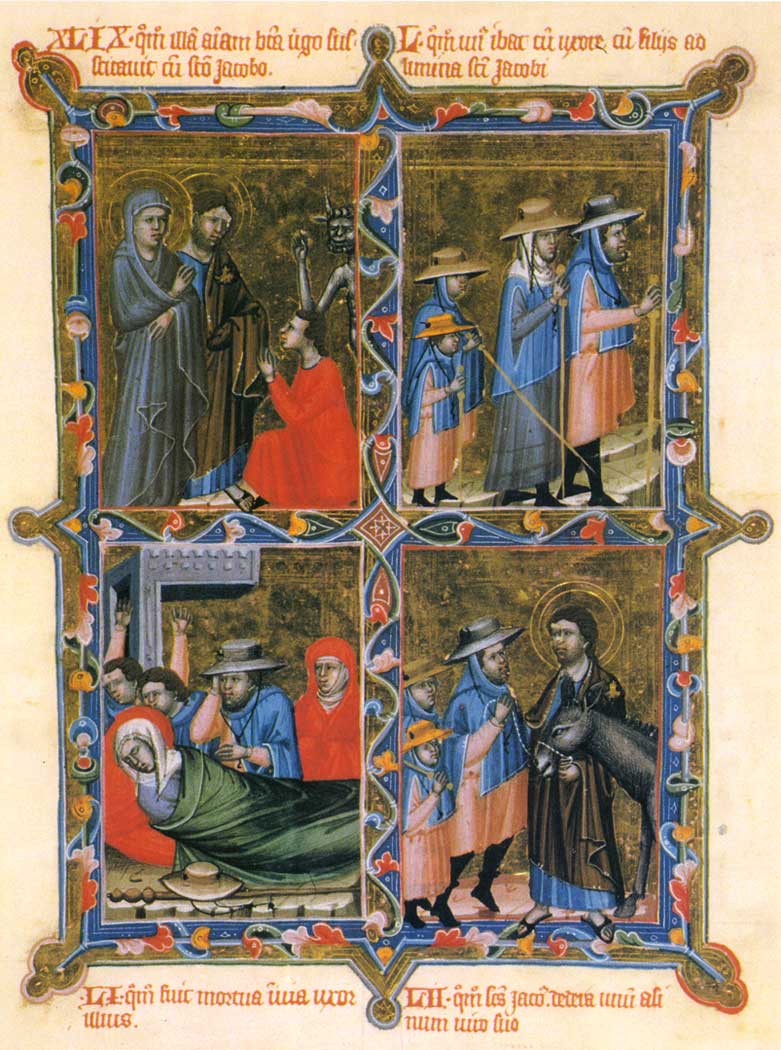 XLIX · qm̄ illā aīam bt̄a ūgo sus
citauit cū stō Jacobo.
L · qm̄ uir ibat cū uxore cū filijs ad
limina sc̄i Jacobi
LI · qm̄ fuit mortua ī uia uxor
illius.
LII · qm̄ scs̄ Jaco. dedera unū asi
num uiro suo